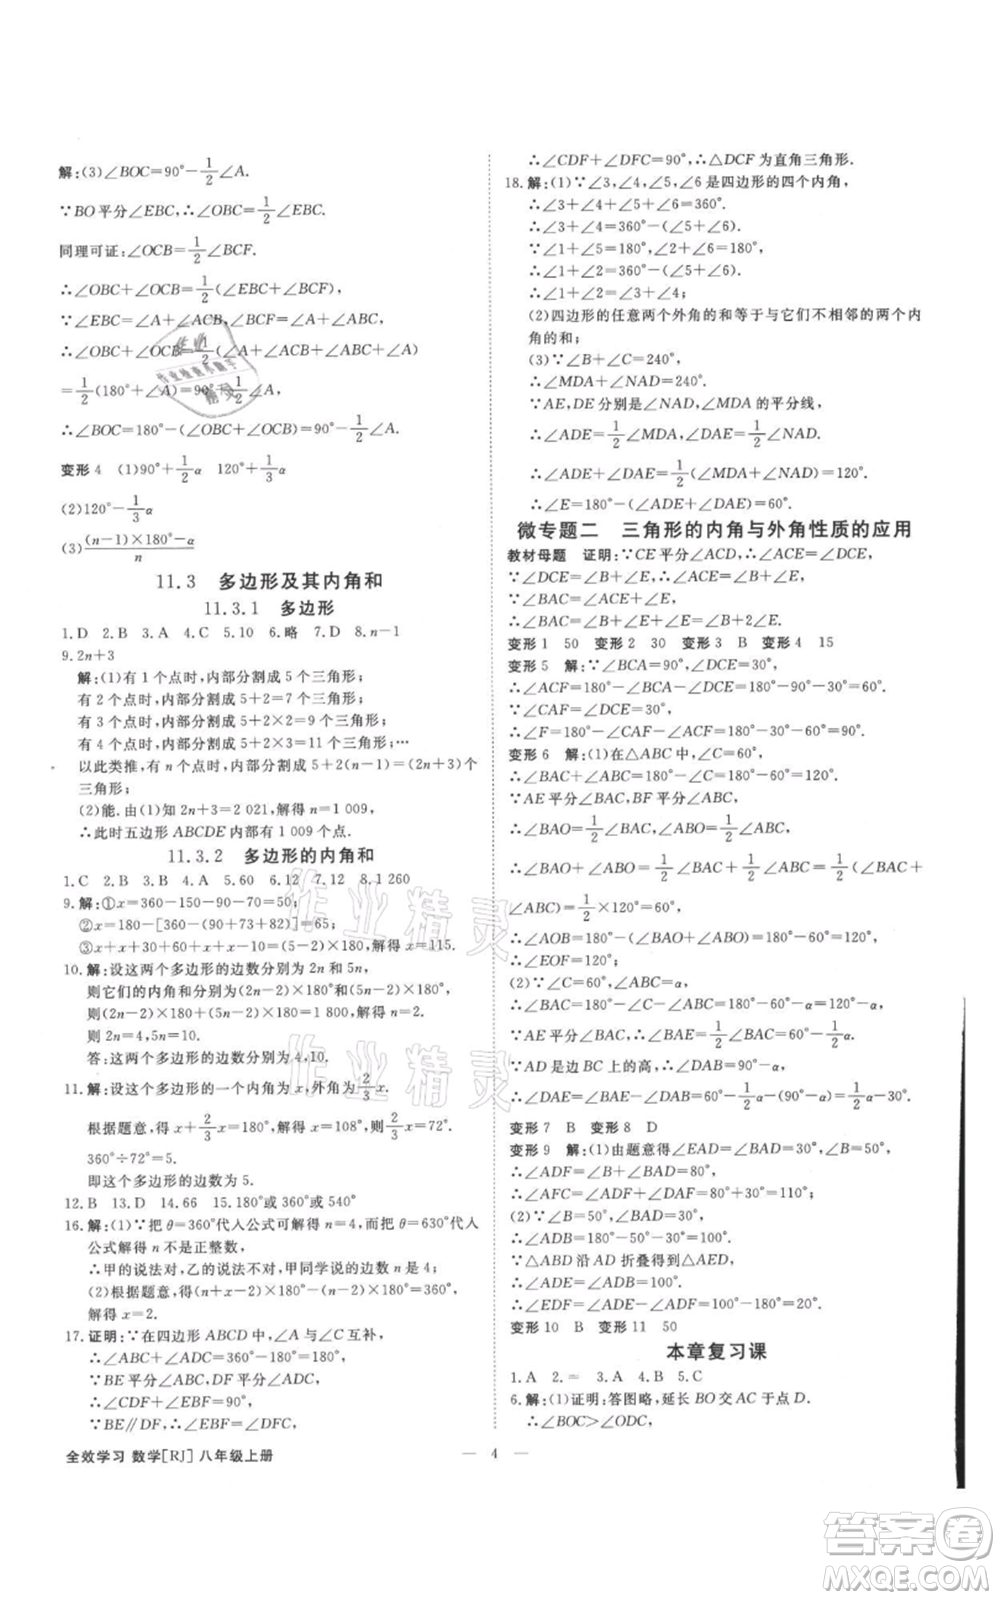 解:(3)∠BOC=90°-1/2∠A.
∵BO平分∠EBC,∴∠OBC=1/2∠EBC.
同理可证:∠OCB=1/2∠BCF.
∴∠OBC+∠OCB=1/2(∠EBC+∠BCF).
∵∠EBC=∠A+∠ACB,∠BCF=∠A+∠ABC,
∴∠OBC+∠OCB=1/2(∠A+∠ACB+∠ABC+∠A)
=1/2(180°+∠A)=90°+1/2∠A.
∴∠BOC=180°-(∠OBC+∠OCB)=90°-1/2∠A.
变形4 (1)90°+1/2α 120°+1/3α
(2)120°-1/3α
(3)(n-1)×180°-α/n
11.3 多边形及其内角和
11.3.1 多边形
1.D 2.B 3.A 4.C 5.10 6.略 7.D 8.n-1
9.2n+3
解:(1)有1个点时,内部分割成5个三角形;
有2个点时,内部分割成5+2=7个三角形;
有3个点时,内部分割成5+2×2=9个三角形;
有4个点时,内部分割成5+2×3=11个三角形;…
以此类推,有n个点时,内部分割成5+2(n-1)=(2n+3)个
三角形;
(2)能.由(1)知2n+3=2 021,解得n=1 009,
∴此时五边形ABCDE内部有1 009个点.
11.3.2 多边形的内角和
1.C 2.B 3.B 4.A 5.60 6.12 7.12 8.1 260
9.解:①x=360-150-90-70=50;
②x=180-[360-(90+73+82)]=65;
③x+x+30+60+x+x-10=(5-2)×180,解得x=115.
10.解:设这两个多边形的边数分别为2n和5n,
则它们的内角和分别为(2n-2)×180°和(5n-2)×180°,
则(2n-2)×180+(5n-2)×180=1 800,解得n=2,
则2n=4,5n=10.
答:这两个多边形的边数分别为4,10.
11.解:设这个多边形的一个内角为x,外角为2/3x.
根据题意,得x+2/3x=180°,解得x=108°,则2/3x=72°.
360°÷72°=5.
即这个多边形的边数为5.
12.B 13.D 14.66 15.180°或360°或540°
16.解:(1)∵把θ=360°代入公式可解得n=4,而把θ=630°代入
公式解得n不是正整数,
∴甲的说法对,乙的说法不对,甲同学说的边数n是4;
(2)根据题意,得(n+x-2)×180°-(n-2)×180°=360°,
解得x=2.
17.证明:∵在四边形ABCD中,∠A与∠C互补,
∴∠ABC+∠ADC=360°-180°=180°.
∵BE平分∠ABC,DF平分∠ADC,
∴∠CDF+∠EBF=90°.
∵BE∥DF,∴∠EBF=∠DFC.
∴∠CDF+∠DFC=90°,∴△DCF为直角三角形.
18.解:(1)∵∠3,∠4,∠5,∠6是四边形的四个内角,
∴∠3+∠4+∠5+∠6=360°.
∴∠3+∠4=360°-(∠5+∠6).
∵∠1+∠5=180°,∠2+∠6=180°,
∴∠1+∠2=360°-(∠5+∠6).
∴∠1+∠2=∠3+∠4;
(2)四边形的任意两个外角的和等于与它们不相邻的两个内
角的和;
(3)∵∠B+∠C=240°,
∴∠MDA+∠NAD=240°.
∵AE,DE分别是∠NAD,∠MDA的平分线,
∴∠ADE=1/2∠MDA,∠DAE=1/2∠NAD.
∴∠ADE+∠DAE=1/2(∠MDA+∠NAD)=120°.
∴∠E=180°-(∠ADE+∠DAE)=60°.
微专题二 三角形的内角与外角性质的应用
教材母题 证明:∵CE平分∠ACD,∴∠ACE=∠DCE,
∵∠DCE=∠B+∠E,∴∠ACE=∠B+∠E.
∵∠BAC=∠ACE+∠E,
∴∠BAC=∠B+∠E+∠E=∠B+2∠E.
变形1 50 变形2 30 变形3 B 变形4 15
变形5 解:∵∠BCA=90°,∠DCE=30°,
∴∠ACF=180°-∠BCA-∠DCE=180°-90°-30°=60°.
∵∠CAF=∠DCE=30°,
∴∠F=180°-∠CAF-∠ACF=180°-30°-60°=90°.
变形6 解:(1)在△ABC中,∠C=60°,
∴∠BAC+∠ABC=180°-∠C=180°-60°=120°.
∵AE平分∠BAC,BF平分∠ABC,
∴∠BAO=1/2∠BAC,∠ABO=1/2∠ABC,
∴∠BAO+∠ABO=1/2∠BAC+1/2∠ABC=1/2(∠BAC+
∠ABC)=1/2×120°=60°.
∴∠AOB=180°-(∠BAO+∠ABO)=180°-60°=120°.
∴∠EOF=120°;
(2)∵∠C=60°,∠ABC=α,
∴∠BAC=180°-∠ABC-∠C=180°-α-60°=120°-α.
∵AE平分∠BAC,∴∠BAE=1/2∠BAC=60°-1/2α.
∵AD是边BC上的高,∴∠DAB=90°-α.
∴∠DAE=∠BAE-∠DAB=60°-1/2α-(90°-α)=1/2α-30°.
变形7 B 变形8 D
变形9 解:(1)由题意得∠EAD=∠BAD=30°,∠B=50°,
∴∠ADF=∠B+∠BAD=80°.
∴∠AFC=∠ADF+∠DAF=80°+30°=110°;
(2)∵∠B=50°,∠BAD=30°,
∴∠ADB=180°-50°-30°=100°.
∵△ABD沿AD折叠得到△AED,
∴∠ADE=∠ADB=100°.
∴∠EDF=100°+100°-180°=20°.
变形10 B 变形11 50
本章复习课
1.A 2.= 3.A 4.B 5.C
6.解:(1)证明:答图略,延长BO交AC于点D.
∴∠BOC>∠ODC,
全效学习 数学[RJ] 八年级上册
— 4 —
作业精灵
作业精灵
答案卷
MXQE.COM